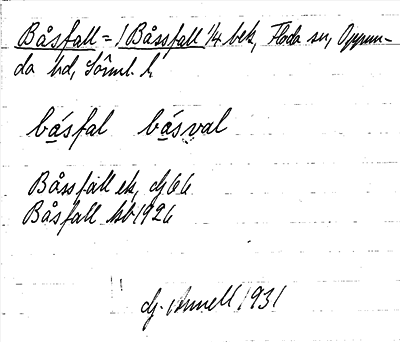 Båsfall = / Båssfall 1/4 bek, Floda sn, Oppun-
da hd, Söml. l.
båsfal båsval
Båssfall ek, dj 66
Båsfall kb 1926
G. Annell 1931